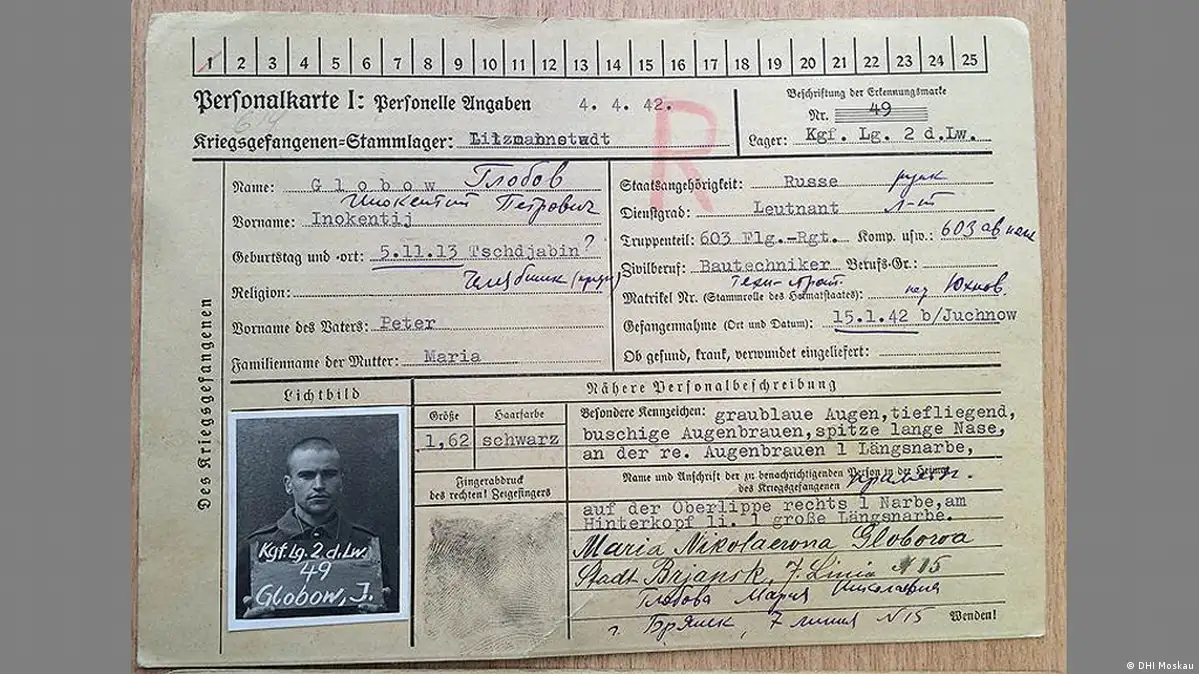 1 2 3 4 5 6 7 8 9 10 11 12 13 14 15 16 17 18 19 20 22 23 24 25
Personalkarte I: Personelle Angaben 4. 4. 42.
Kriegsgefangenen-Stammlager: Litzmannstadt
R
Beschriftung der Erkennungsmarke
Nr. 49
Lager: Kgf. Lg. 2 d.Lw.
Des Kriegsgefangenen
Name: Globow Глобов
Иннокентий Петрович
Vorname: Inokentij
Geburtstag und -ort: 5.11.13 Tschdjabin?
Religion:
Vorname des Vaters: Peter
Familienname der Mutter: Maria
Staatsangehörigkeit: Russe
Dienstgrad: Leutnant Л-т
Truppenteil: 603 Flg.-Rgt. Komp. usw.: 603 ав
Zivilberuf: Bautechniker Berufs-Gr.:
Matrikel Nr. (Stammrolle des Heimatstaates): Юхнов.
Gefangennahme (Ort und Datum): 15.1.42 b/Juchnow
Ob gesund, krank, verwundet eingeliefert:
Lichtbild
Kgf.Lg.2 d.Lw
49
Globow, J.
Nähere Personalbeschreibung
Größe Haarfarbe
1,62 schwarz
Fingerabdruck
des rechten! Zeigefingers
Besondere Kennzeichen: graublaue Augen,tiefliegend,
buschige Augenbrauen,spitze lange Nase,
an der re. Augenbrauen 1 Längsnarbe,
Name und Anschrift der zu benachrichtigenden Person in der Heimat
des Kriegsgefangenen
auf der Oberlippe rechts 1 Narbe,am
Hinterkopf li. 1 große Längsnarbe.
Maria Nikolaewna Globowa
Stadt Brjansk, 7 Linia N 15
Глобова Мария Николаевна
г. Брянск, 7 линия N 15 Wenden!
© DHI Moskau